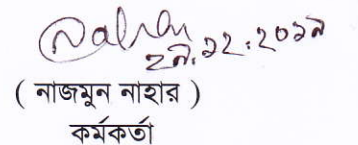 ২৯.১২.২০১৯
( নাজমুন নাহার )
কর্মকর্তা